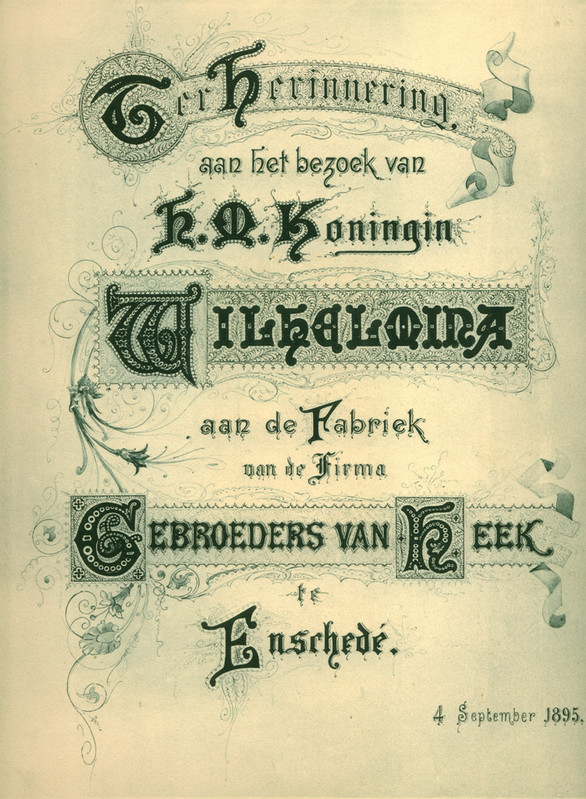 Ter Herinnering
aan het bezoek van
H. M. Koningin
WILHELMINA
aan de Fabriek
van de Firma
GEBROEDERS VAN HEEK
te
Enschedé.
4 September 1895.